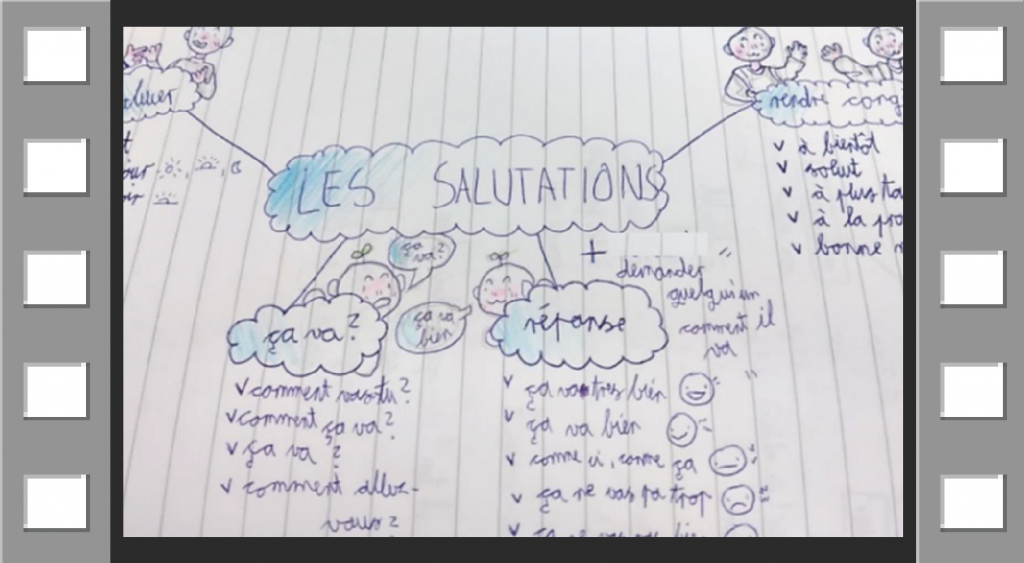 LES SALUTATIONS
rendre cong
v à bientôt
v salut
v à plus ta
v à la pro
v bonne n
ça va?
ça va?
v comment vas-tu?
v comment ça va?
v ça va?
v comment allez-
vous?
ça va
bien
réponse
+
demander
quelqu'un
comment il
va
v ça va très bien
v ça va bien
v comme ci, comme ça
v ça ne vas pa trop